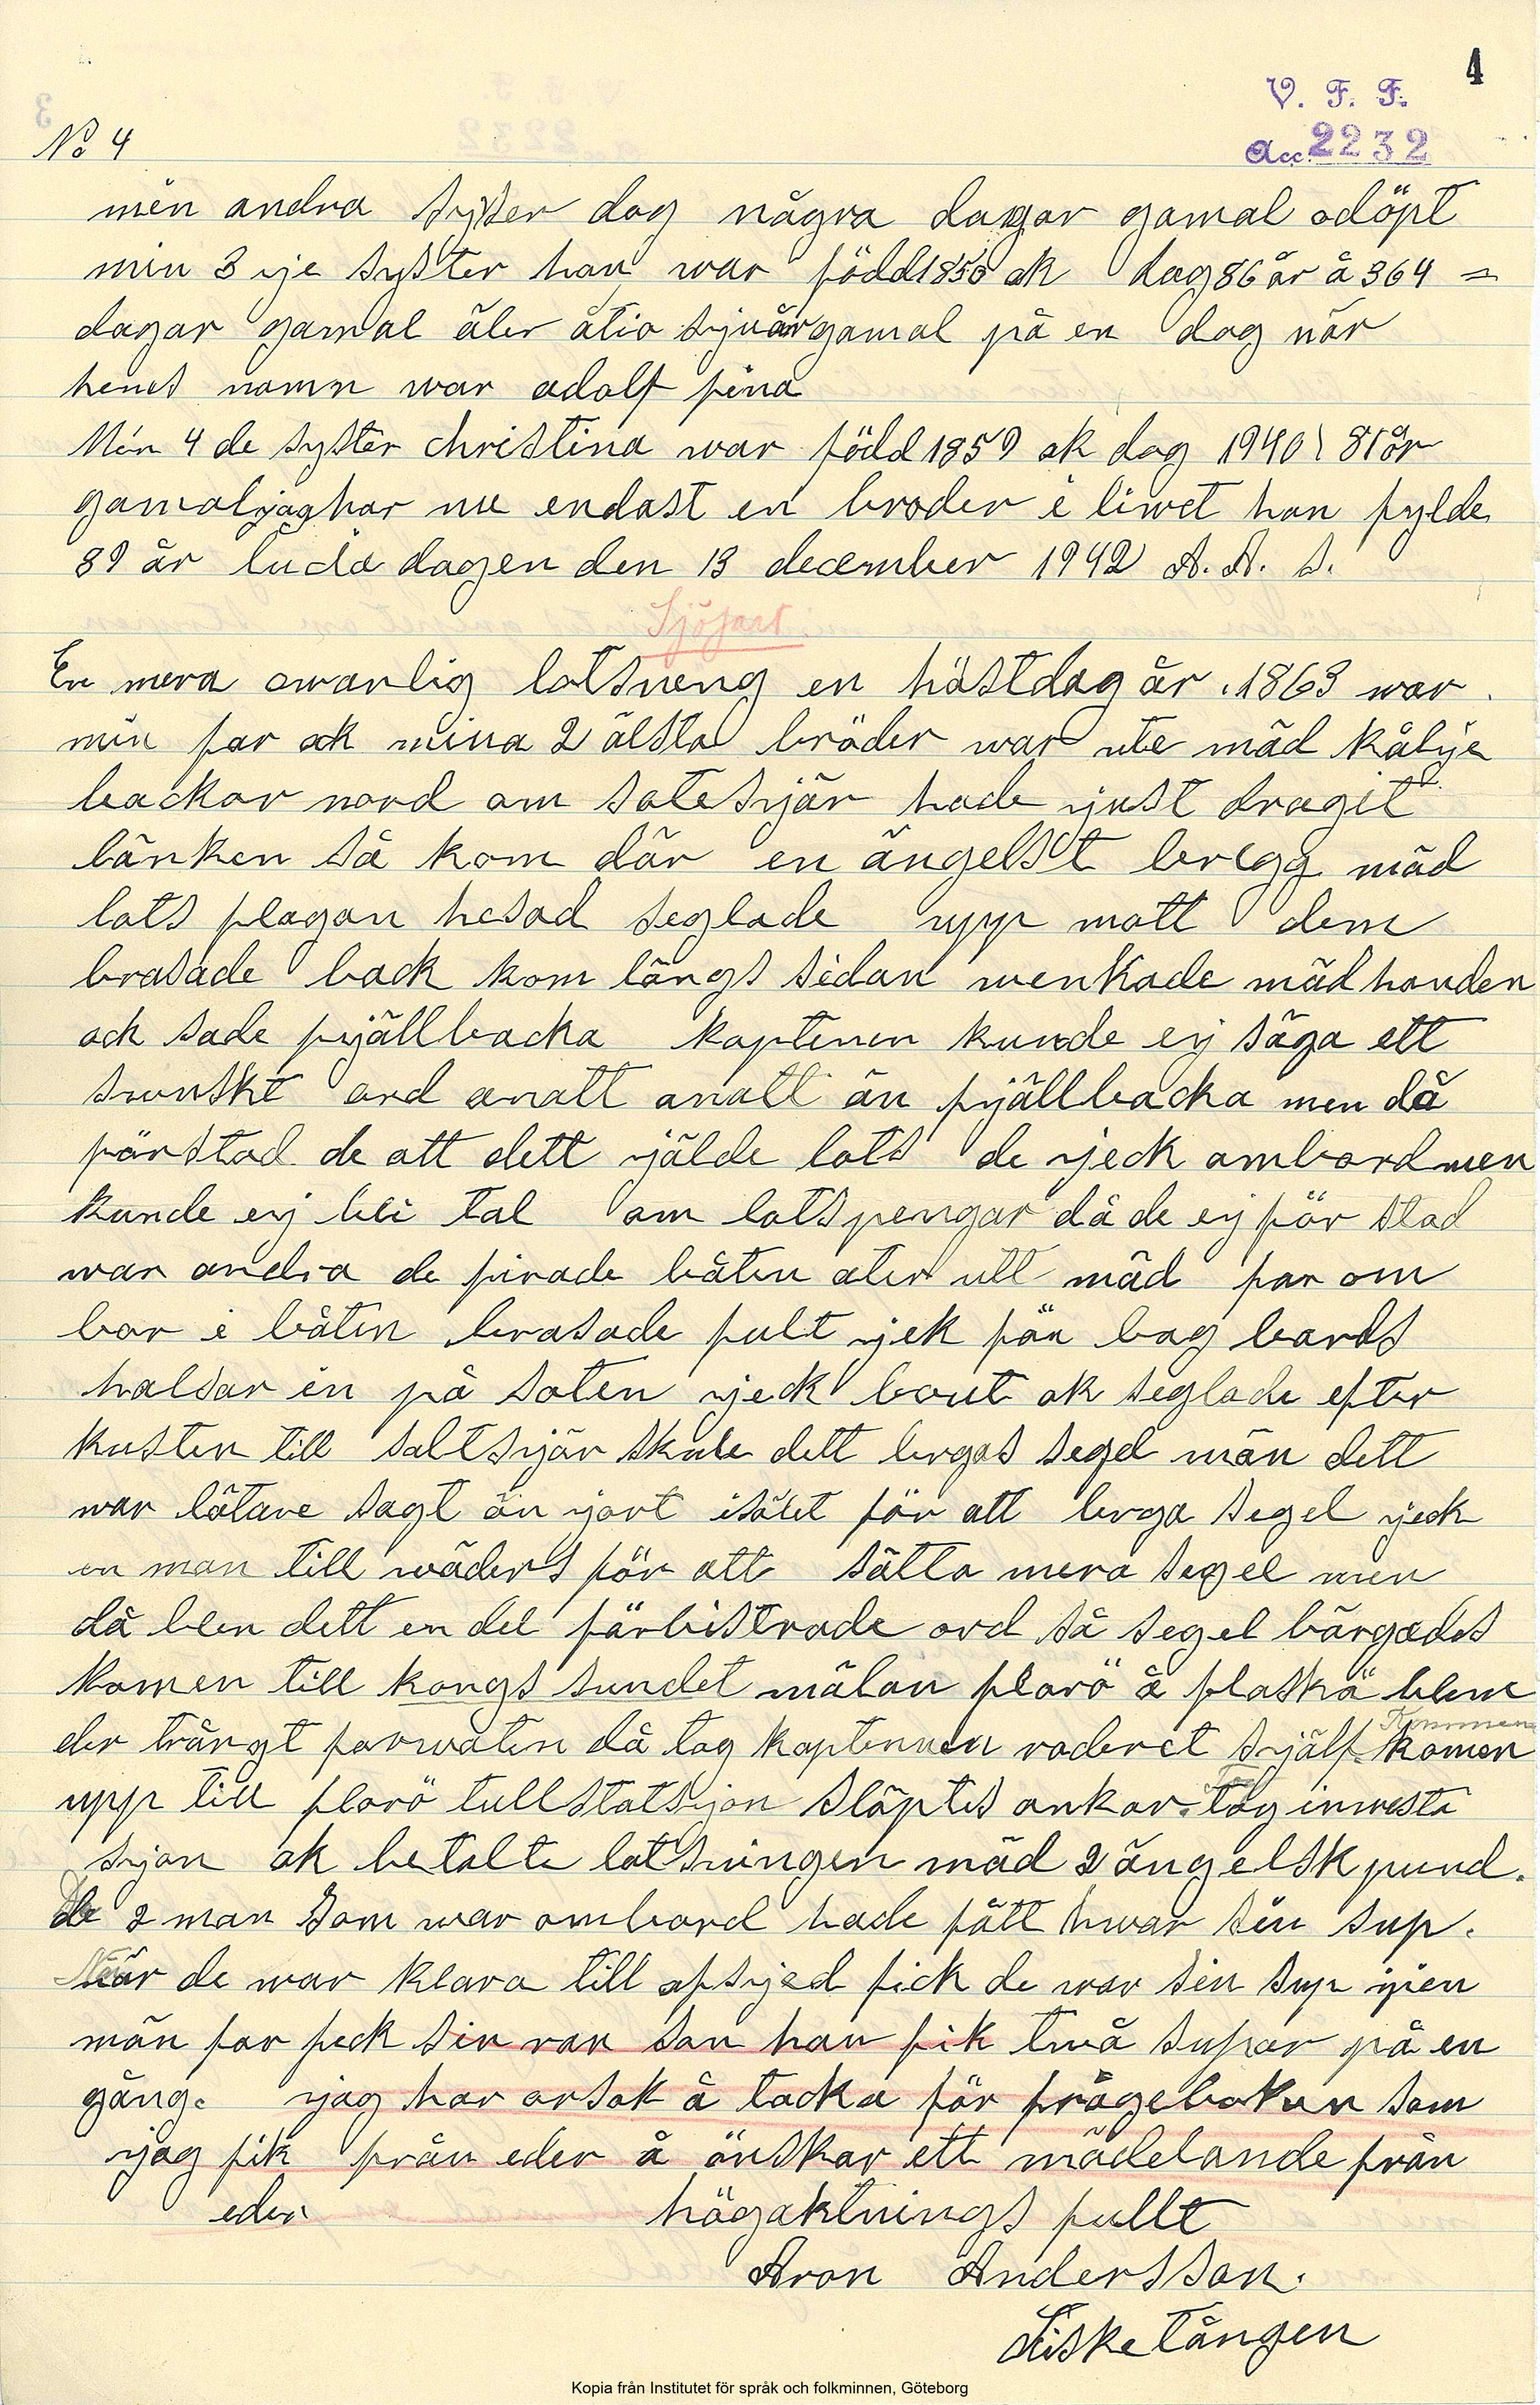 4
V. F. F.
Acc. 2232
No 4
min andra syster dog några dagar gamal odöpt
min 3 je syster hon war född 1850 ok dog 86 år å 364 =
dagar gamal äler åtio sjuårgamal på en dag når
henes namn war adolf fina
Min 4 de syster christina war född 1859 ok dog 1940 81 år
gamal jag har nu endast en broder i liwet han fylde
89 år lucia dagen den 13 december 1942 A. A. S.
Sjöfart.
En mera owanlig lotsneng en höstdag år 1863 war
min far ock mina 2 älsta bröder war ute mäd kålje
backor nord om sotesjär hade just dragit
länken så kom där en ängelst brigg mäd
lots flagan hesad seglade upp mott dem
brasade back kom längs sidan wenkade mäd handen
ock sade fjällbacka kaptenen kunde ej säga ett
swenskt ord anatt anatt än fjällbacka men då
förstod de att dett jälde lots de jeck ombord men
kunde ej bli tal om lotspengar då de ej för stod
war andra de firade båten ater utt mäd far om
bor i båten brasade fult jek för bag bords
halsar in på soten jeck bout ok seglade efter
kusten till saltsjär skule dett bergas segel män dett
war lätare sagt än jort isället för att berga segel jeck
en man till wäders för att sätta mera segel men
då blev dett en del förbistrade ord så segel bärgades
komen till kongs sundet mälan florö å flaskä blew
der trångt farwaten då tog kaptennen roderet sjålf Kommen komen
upp till florö tullstatsjon släptes ankar. tog inwesta
sjon ok betalte lotsningen mäd 2 ängelsk pund.
de 2 man som war ombord hade fått hwar sin sup.
när de war klara till afsjed fick de war sin sup ijen
män far feck sin ran son han fik twå supar på en
gång. jag har orsak å tacka för frågeboken som
jag fik från eder å önskar ett mädelande från
eder högaktnings fullt
Aron Andersson.
Fisketången
Kopia från Institutet för språk och folkminnen, Göteborg